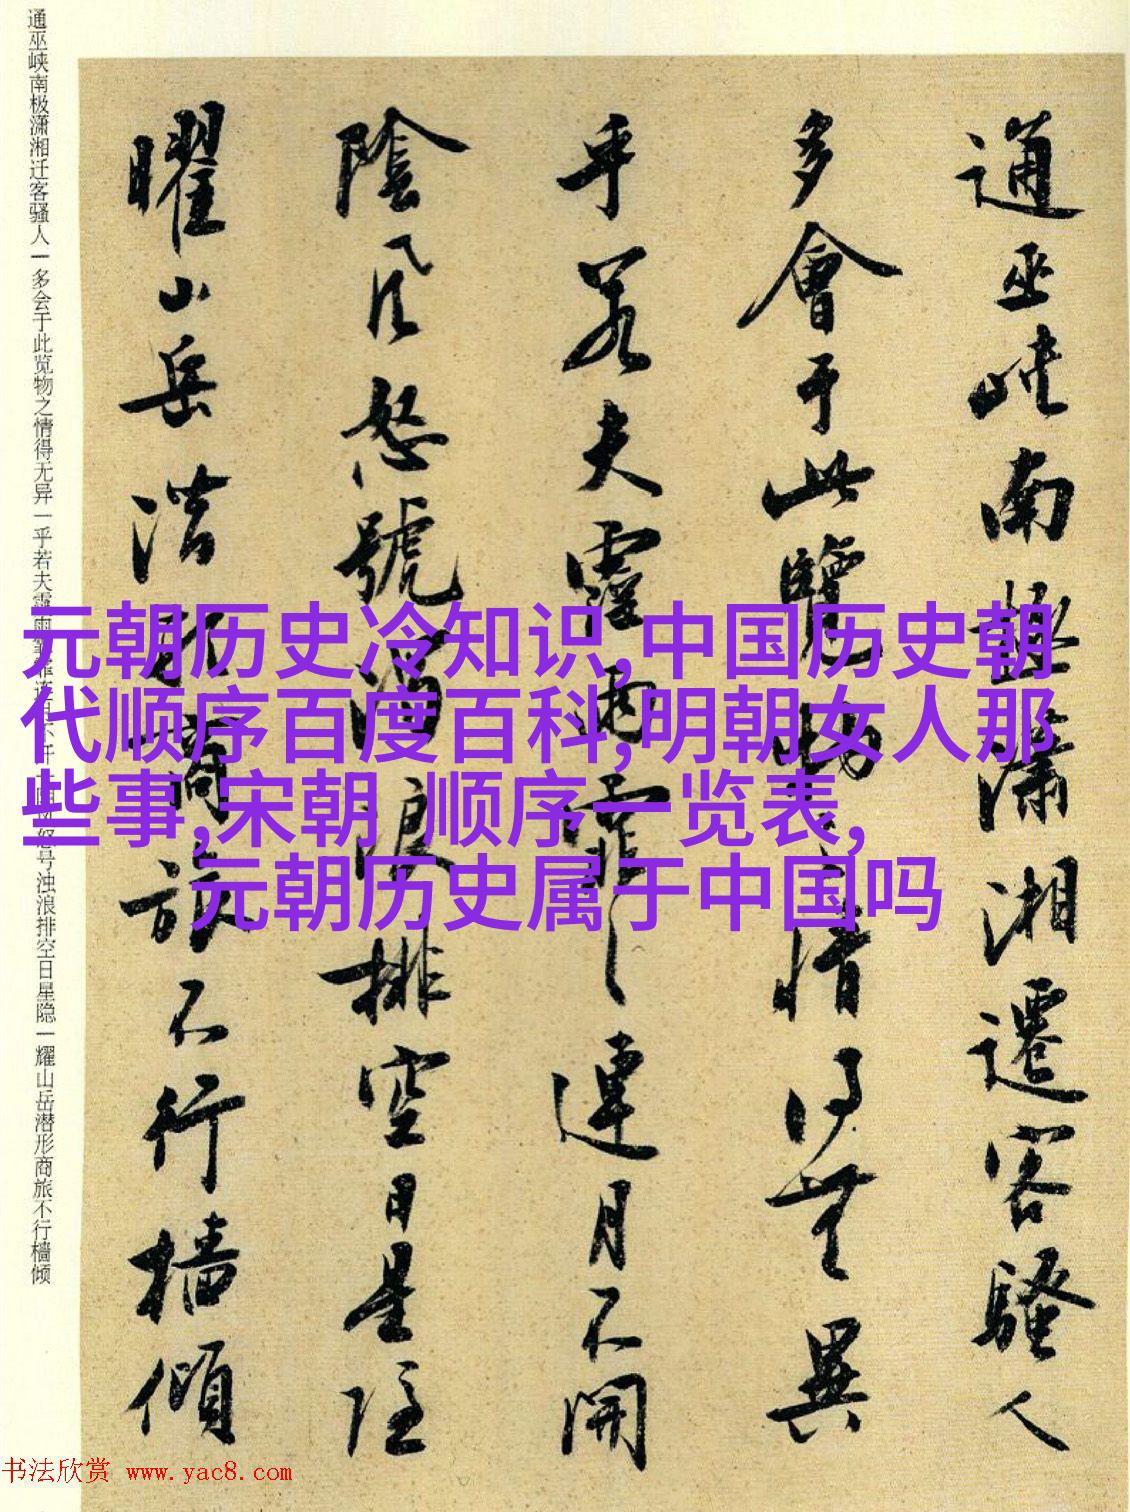 通巫峡南极潇湘迁客骚人一多会于此览物之情得无异一乎若夫霪雨霏霏连月不开一阴风怒号浊浪排空日星隐一耀山岳潜形商旅不行樯倾
通巫峽南極瀟湘遷客騷人
多會于此覽物之情得無異
乎若夫霪雨霏〻連月不開
陰風怒號濁浪排空日星隱
曜山岳潛形商旅不行檣傾
元朝历史冷知识,中国历史朝
代顺序百度百科,明朝女人那
些事,宋朝 顺序一览表,
元朝历史属于中国吗
书法欣赏 www.yac8.com